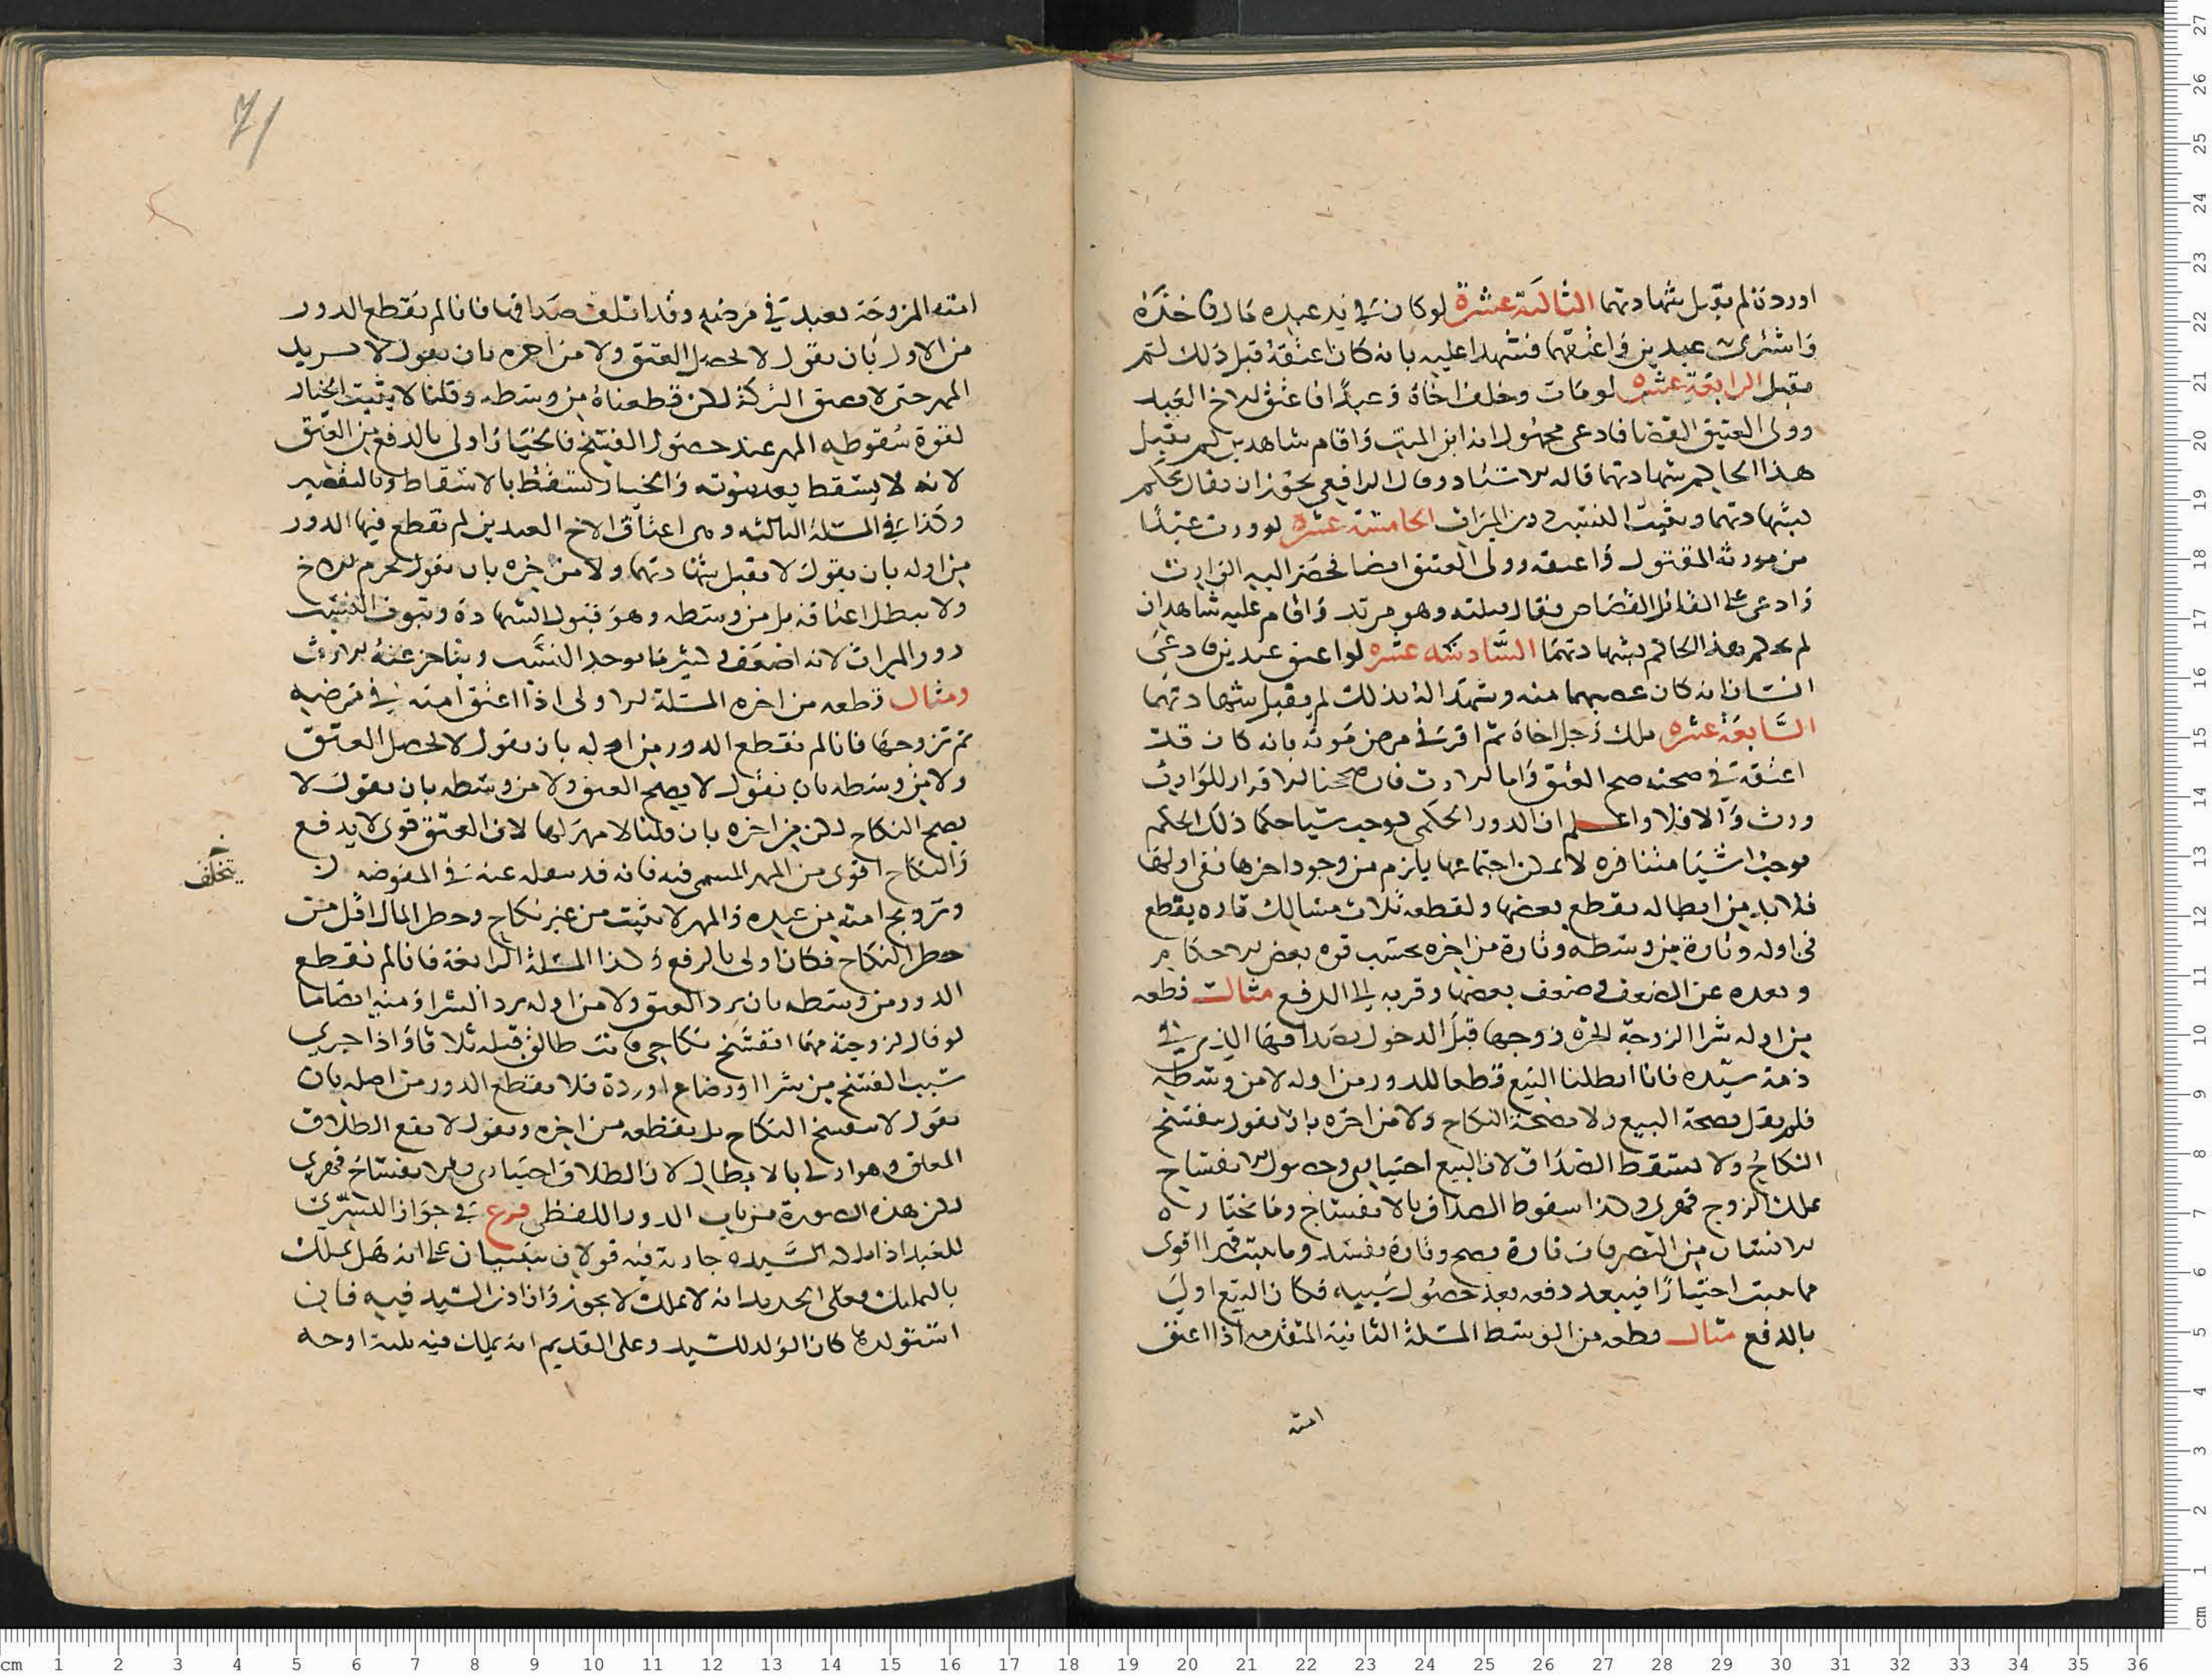 او ردة لم تقبل شهادتهما الثالثة عشرة لو كان في يد عبده مال فاخذه
واشترى عبدين واعتقهما فشهدا عليه بانه كان اعتقه قبل ذلك لم
تقبل الرابعة عشره لو مات وخلف اخاه وعبدا فاعتق الاخ العبد
وولى العتيق القضا فادعى مجهول انه ابن الميت واقام شاهدين لم يقبل
هذا الحاكم شهادتهما قاله الاستاد وقال الرافعي يجوز ان يقال يحكم
بشهادتهما ويثبت النسب دون الميراث الخامسة عشرة لو ورث عبدا
من مورثه المقتول واعتقه وولى العتيق القضا فحضر اليه الوارث
وادعى على القاتل القصاص فقال قتلته وهو مرتد واقام عليه شاهدان
لم يحكم هذا الحاكم بشهادتهما السادسه عشره لو اعتق عبدين فادعى
انسان انه كان غصبهما منه وشهدا له بذلك لم يقبل شهادتهما
السابعة عشره ملك رجل اخاه ثم اقر في مرض موته بانه كان قد
اعتقه في صحته صح العتق واما الارث فان صححنا الاقرار للوارث
ورث والا فلا واعلم ان الدور الحكمي يوجب شيا حكما ذلك الحكم
موجب اشيا متنافره لا يمكن اجتماعها يلزم من وجود اخرها نفي اولها
فلا بد من ابطاله بقطع بعضها ولقطعه ثلاث مسالك تاره يقطع
في اوله وتارة من وسطه وتارة من اخره بحسب قوه بعض الاحكام
وبعده عن الدفع وضعف بعضها وقربه الى الدفع مثال قطعه
من اوله شرا الزوجة الحره زوجها قبل الدخول بصداقها الذي في
ذمة سيده فانا ابطلنا البيع قطعا للدور من اوله لا من وسطه
فلم يقل بصحة البيع ولا بصحة النكاح ولا من اخره بان يقول ينفسخ
النكاح ولا يسقط الصداق لان البيع اختياري وحصول الانفساخ
بملك الزوج قهري وكذا سقوط الصداق بالانفساخ وما يختاره
الانسان من التصرفات تارة يصح وتارة يفسد وما يثبت قهرا اقوى
مما يثبت اختيارا فيبعد دفعه بعد حصول سببه فكان البيع اولى
بالدفع مثال قطعه من الوسط المسئلة الثانية المتقدمه اذا اعتق
امته
71
امته المزوجة بعبد في مرضه وقد اتلف صداقها فانا لم نقطع الدور
من الاول بان نقول لا يحصل العتق ولا من اخره بان نقول لا يسترد
المهر حتى لا تضيق التركة لكن قطعناه من وسطه وقلنا لا يثبت الخيار
لقوة سقوطه المهر عند حصول الفسخ فالخيار اولى بالدفع من العتق
لانه لا يسقط بعد ثبوته والخيار يسقط بالاسقاط وبالتقصير
وكذا في المسئلة الثالثه وهى اعتاق الاخ العبدين لم نقطع فيها الدور
من اوله بان نقول لا تقبل شهادتهما ولا من اخره بان نقول يحرم الاخ
ولا يبطل اعتاقه بل من وسطه وهو قبول الشهادة وثبوت النسب
دون الميراث لانه اضعف لكثير ما يوجد النسب ويتاخر عنه الارث
ومثال قطعه من اخره المسئلة الاولى اذا اعتق امته في مرضه
ثم تزوجها فانا لم نقطع الدور من اوله بان نقول لا يحصل العتق
ولا من وسطه بان نقول لا يصح العتق ولا من وسطه بان نقول لا
يصح النكاح لكن من اخره بان قلنا لا مهر لها لان العتق قوى لا يدفع
والنكاح اقوى من المهر المسمى فيه فانه قد ينفك عنه في المفوضه
يتخلف
وتزويج امته من عبده والمهر لا يثبت من غير نكاح وخطر المال اقل من
خطر النكاح فكان اولى بالرفع وكذا المسئلة الرابعة فانا لم نقطع
الدور من وسطه بان يرد العتق ولا من اوله برد الشرا ومنه ايضا ما
لو قال لزوجته مهما انفسخ نكاحي فانت طالق قبله ثلاثا واذا جرى
سبب الفسخ من شرا او رضاع او ردة فلا نقطع الدور من اصله بان
نقول لا ينفسخ النكاح بل نقطعه من اخره ونقول لا يقع الطلاق
المعلق وهو اولى بالابطال لان الطلاق اختياري والانفساخ قهري
لكن هذه الصورة من باب الدور اللفظي فرع في جواز التسري
للعبد اذا ملكه السيد جارية فيه قولان مبنيان على انه هل يملك
بالتمليك فعلى الجديد انه لا يملك لا يجوز وان اذن السيد فيه فان
استولدها كان الولد للسيد وعلى القديم انه يملك فيه ثلثة اوجه